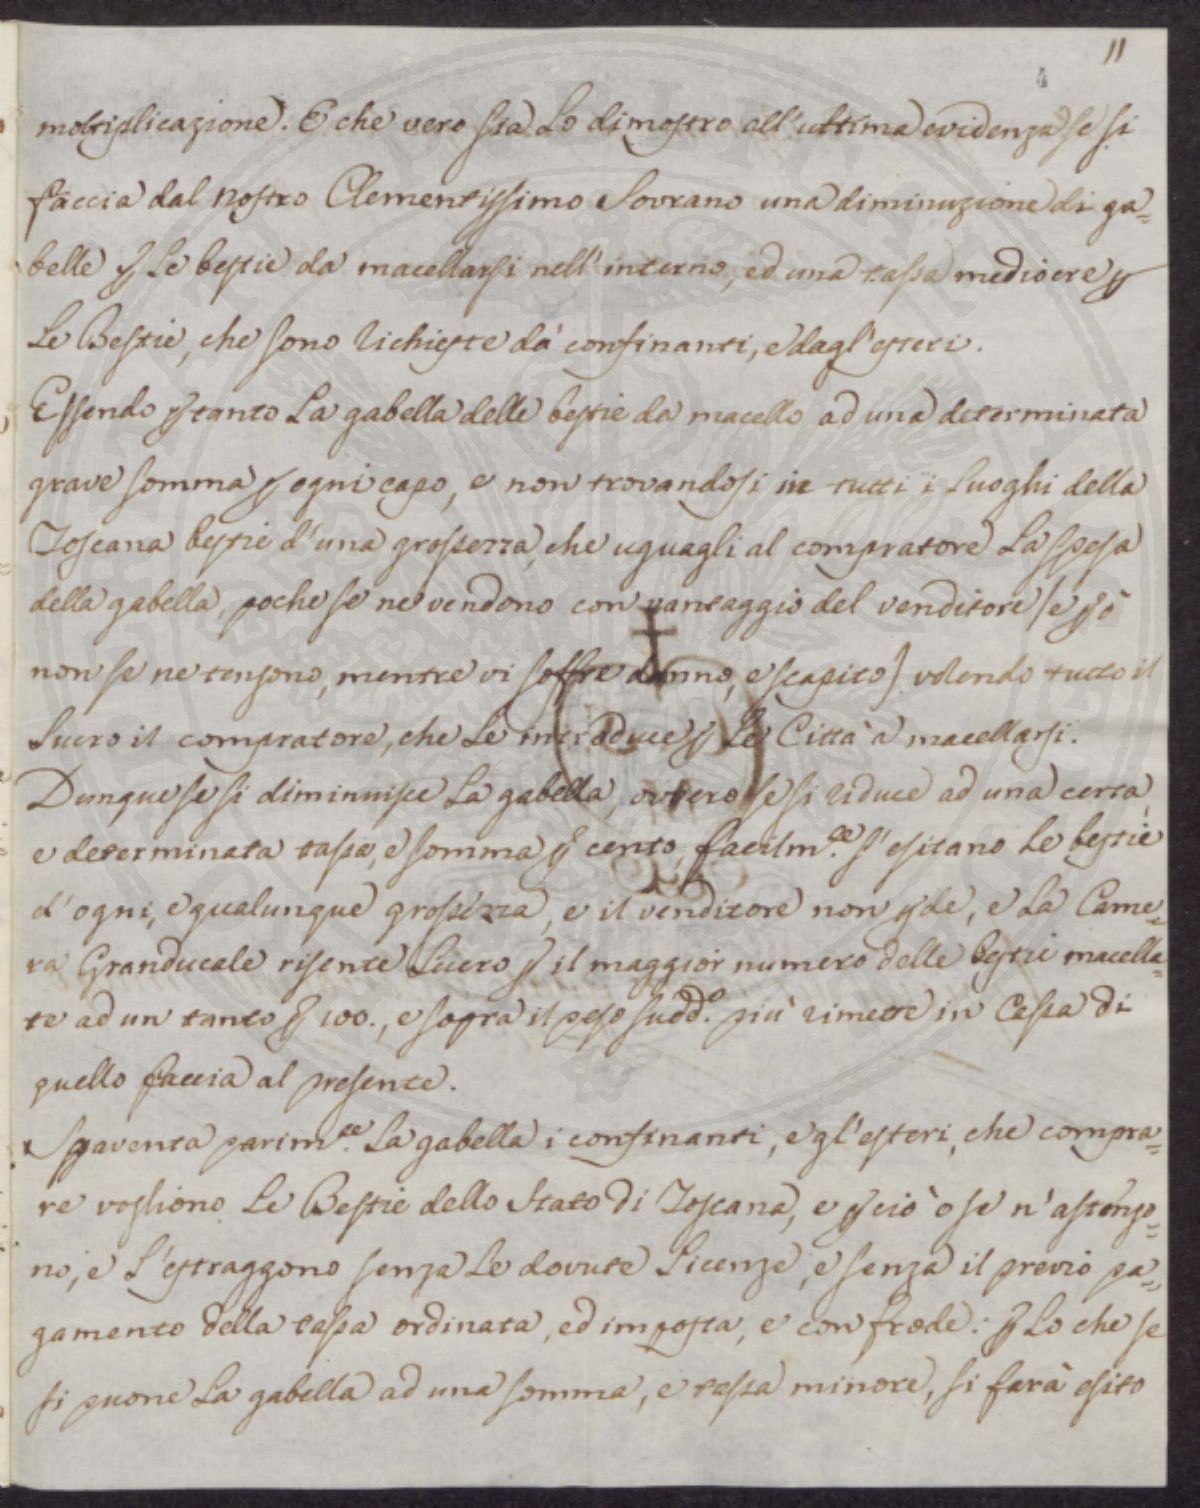 11
4
moltiplicazione. E che vero sia Lo dimostro all'ultima evidenza se si
faccia dal nostro Clementissimo Sovrano una diminuzione di ga=
belle p Le bestie da macellarsi nell'interno, ed una tassa mediocre p
Le Bestie, che sono richieste dá confinanti, e dagl'esteri.
Essendo ptanto La gabella delle bestie da macello ad una determinata
grave somma p ogni capo, e non trovandosi in tutti i Luoghi della
Toscana bestie d'una grossezza, che uguagli al compratore La spesa
della gabella, poche se ne vendono con vantaggio del venditore (e pò
non se ne tengono, mentre vi soffre danno, e scapito) volendo tutto il
Lucro il compratore, che Le introduce p Le Città a macellarsi.
Dunque se si diminuisce La gabella, ovvero se si riduce ad una certa,
e determinata tassa, e somma p cento, facilm.te s'esitano Le bestie
d'ogni, e qualunque grossezza, e il venditore non pde, e La Came=
ra Granducale risente Lucro p il maggior numero delle bestie macella=
te ad un tanto p 100., e sopra il peso sudd.o più rimette in Cassa di
quello faccia al presente.
Spaventa parim.te La gabella i confinanti, e gl'esteri, che compra=
re vogliono Le Bestie dello Stato di Toscana, e pciò o se n'astengo=
no, e L'estraggono senza Le dovute Licenze, e senza il previo pa=
gamento della tassa ordinata, ed imposta, e con frode: p Lo che se
si puone La gabella ad una somma, e tassa minore, si farà esito